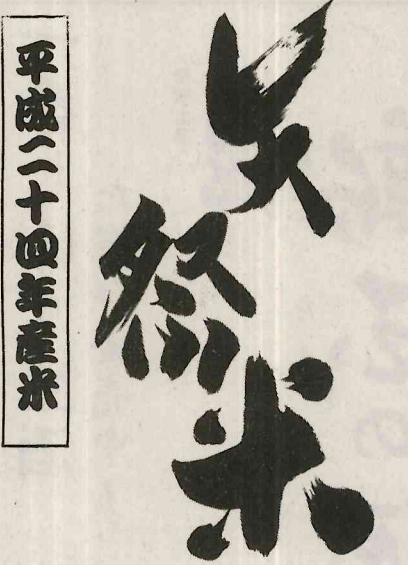 矢祭米
平成二十四年産米